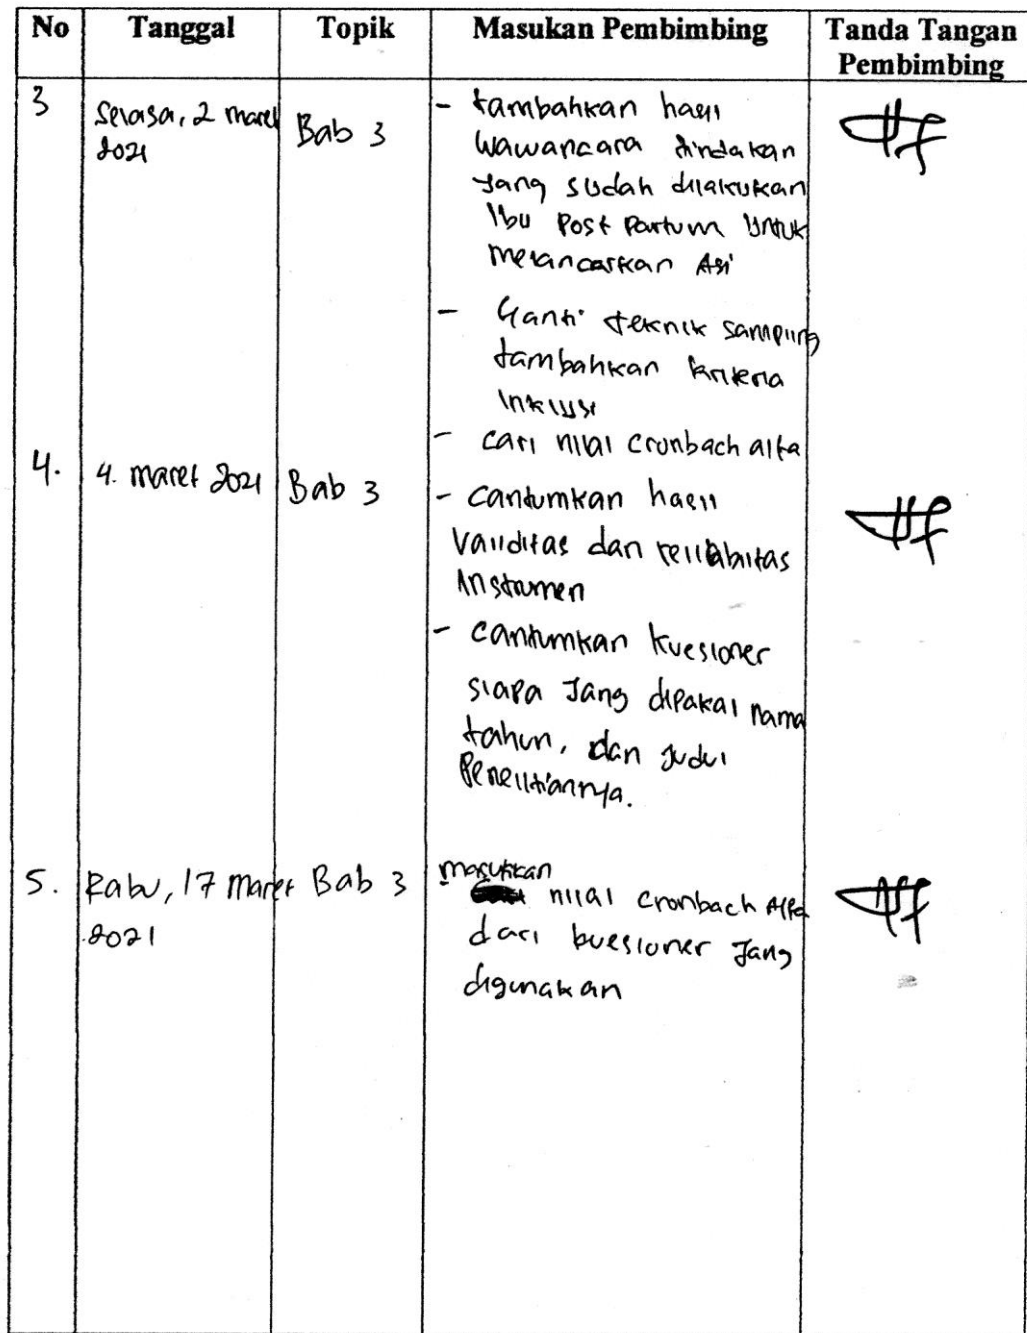 No Tanggal Topik Masukan Pembimbing Tanda Tangan
Pembimbing
3 Selasa, 2 maret Bab 3 - tambahkan hasil
2021 wawancara tindakan
yang sudah dilakukan
Ibu Post Partum Untuk
melancarkan Asi
- Ganti teknik sampling
tambahkan kriteria
inklusi
- cari nilai cronbach alfa
4. 4. maret 2021 Bab 3 - cantumkan hasil
validitas dan reliabilitas
Instrumen
- cantumkan kuesioner
siapa yang dipakai nama
tahun, dan judul
Penelitiannya.
5. Rabu, 17 Maret Bab 3 masukkan
2021 - nilai cronbach Alfa
dari kuesioner yang
digunakan